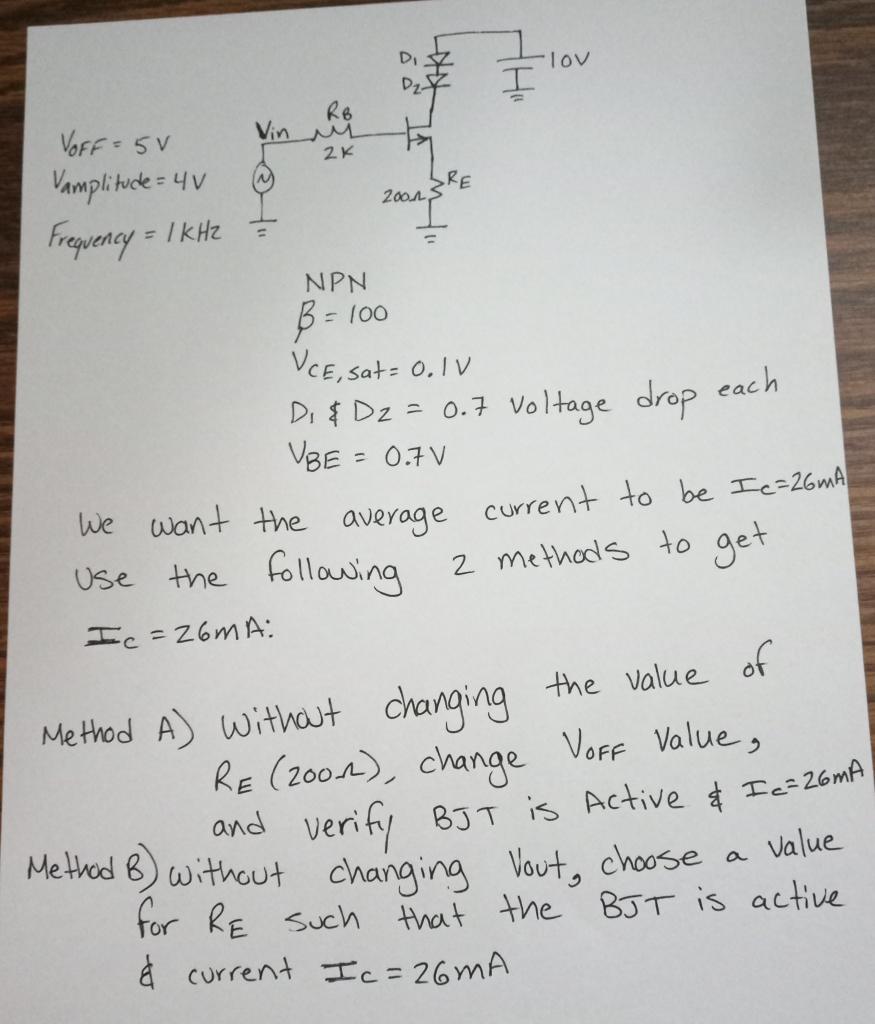 D1
10V
D2
RB
Vin
2K
VOFF = 5V
Vamplitude = 4V
Frequency = 1kHz
RE
200Ω
NPN
β = 100
VCE, sat = 0.1V
D1 & D2 = 0.7 Voltage drop each
VBE = 0.7V
We want the average current to be Ic=26mA
Use the following 2 methods to get
Ic = 26mA:
Method A) Without changing the value of
RE (200Ω), change VOFF Value,
and verify BJT is Active & Ic=26mA
Method B) without changing Vout, choose a value
for RE such that the BJT is active
& current Ic = 26mA